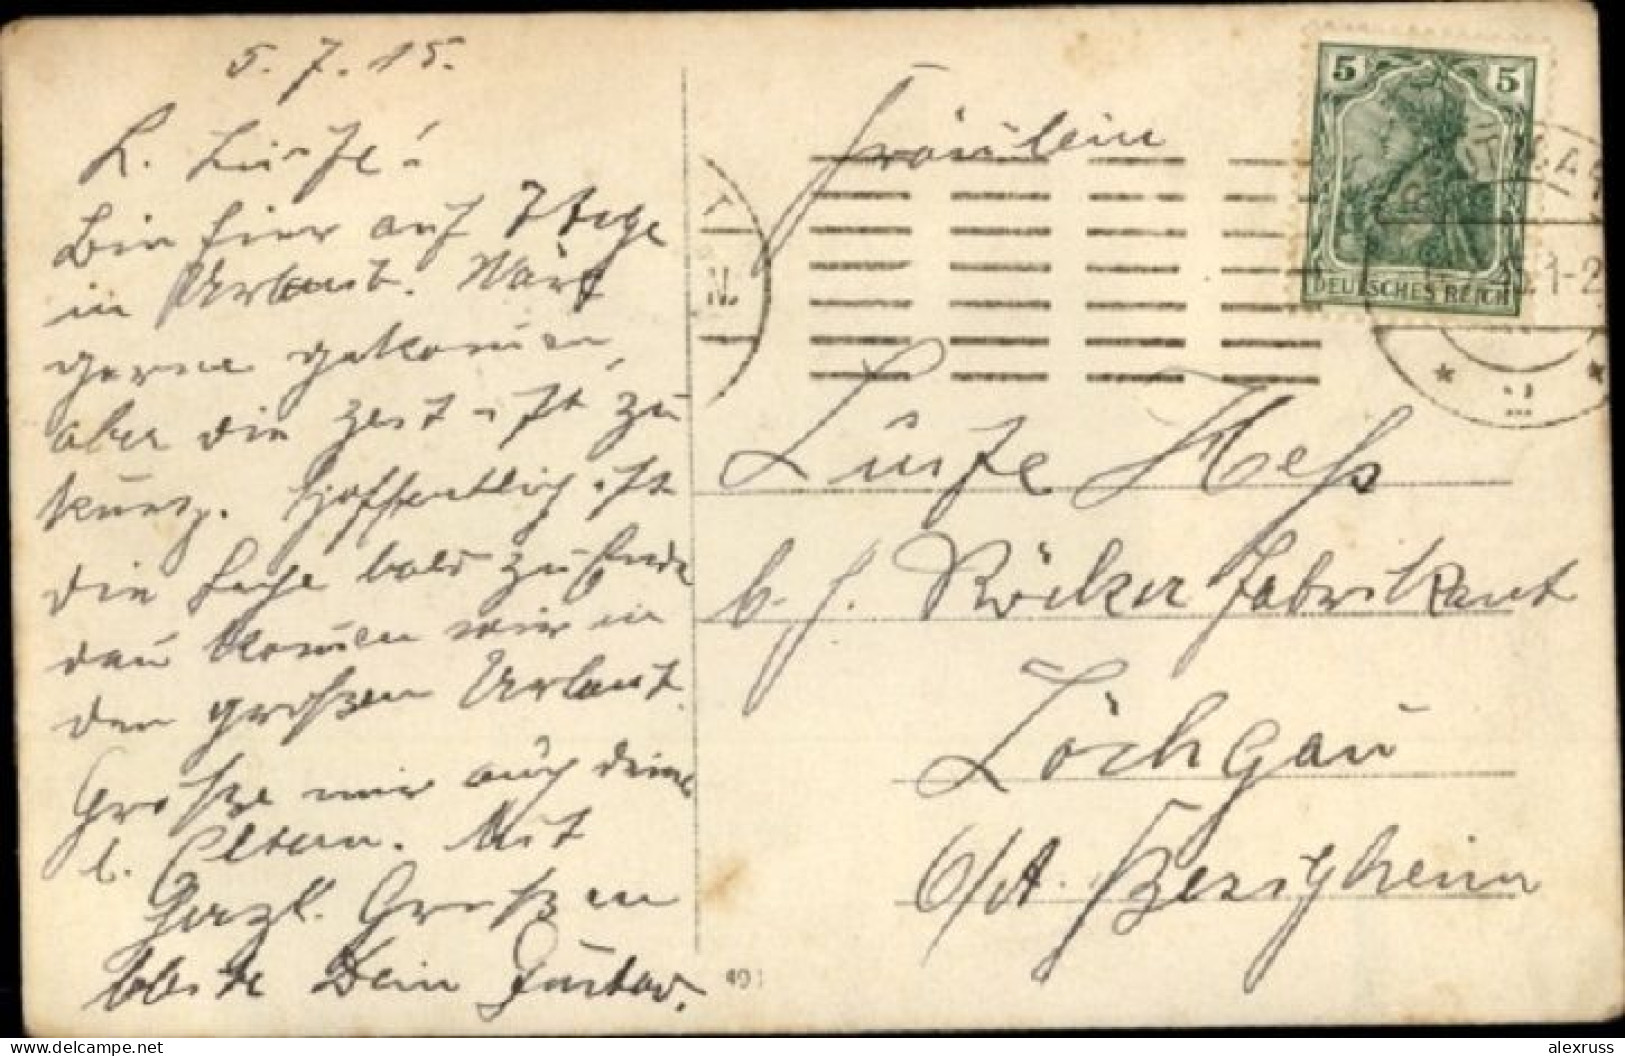 5.7.15.
L. Luise!
Bin hier auf 7 Tage
in Urlaub. Wäre
gerne gekommen,
aber die Zeit ist zu
kurz. Hoffentlich ist
die Sache bald zu Ende
dan kommen wir in
den großen Urlaub.
Grüße mir auch deine
l. Eltern. Mit
herzl. Grüßen
Dein Gustav.
Fräulein
Luise Heß
b. H. Röcker Fabrikant
Löchgau
O/A. Besigheim
5 5
DEUTSCHES REICH
1-2
N.
alexruss